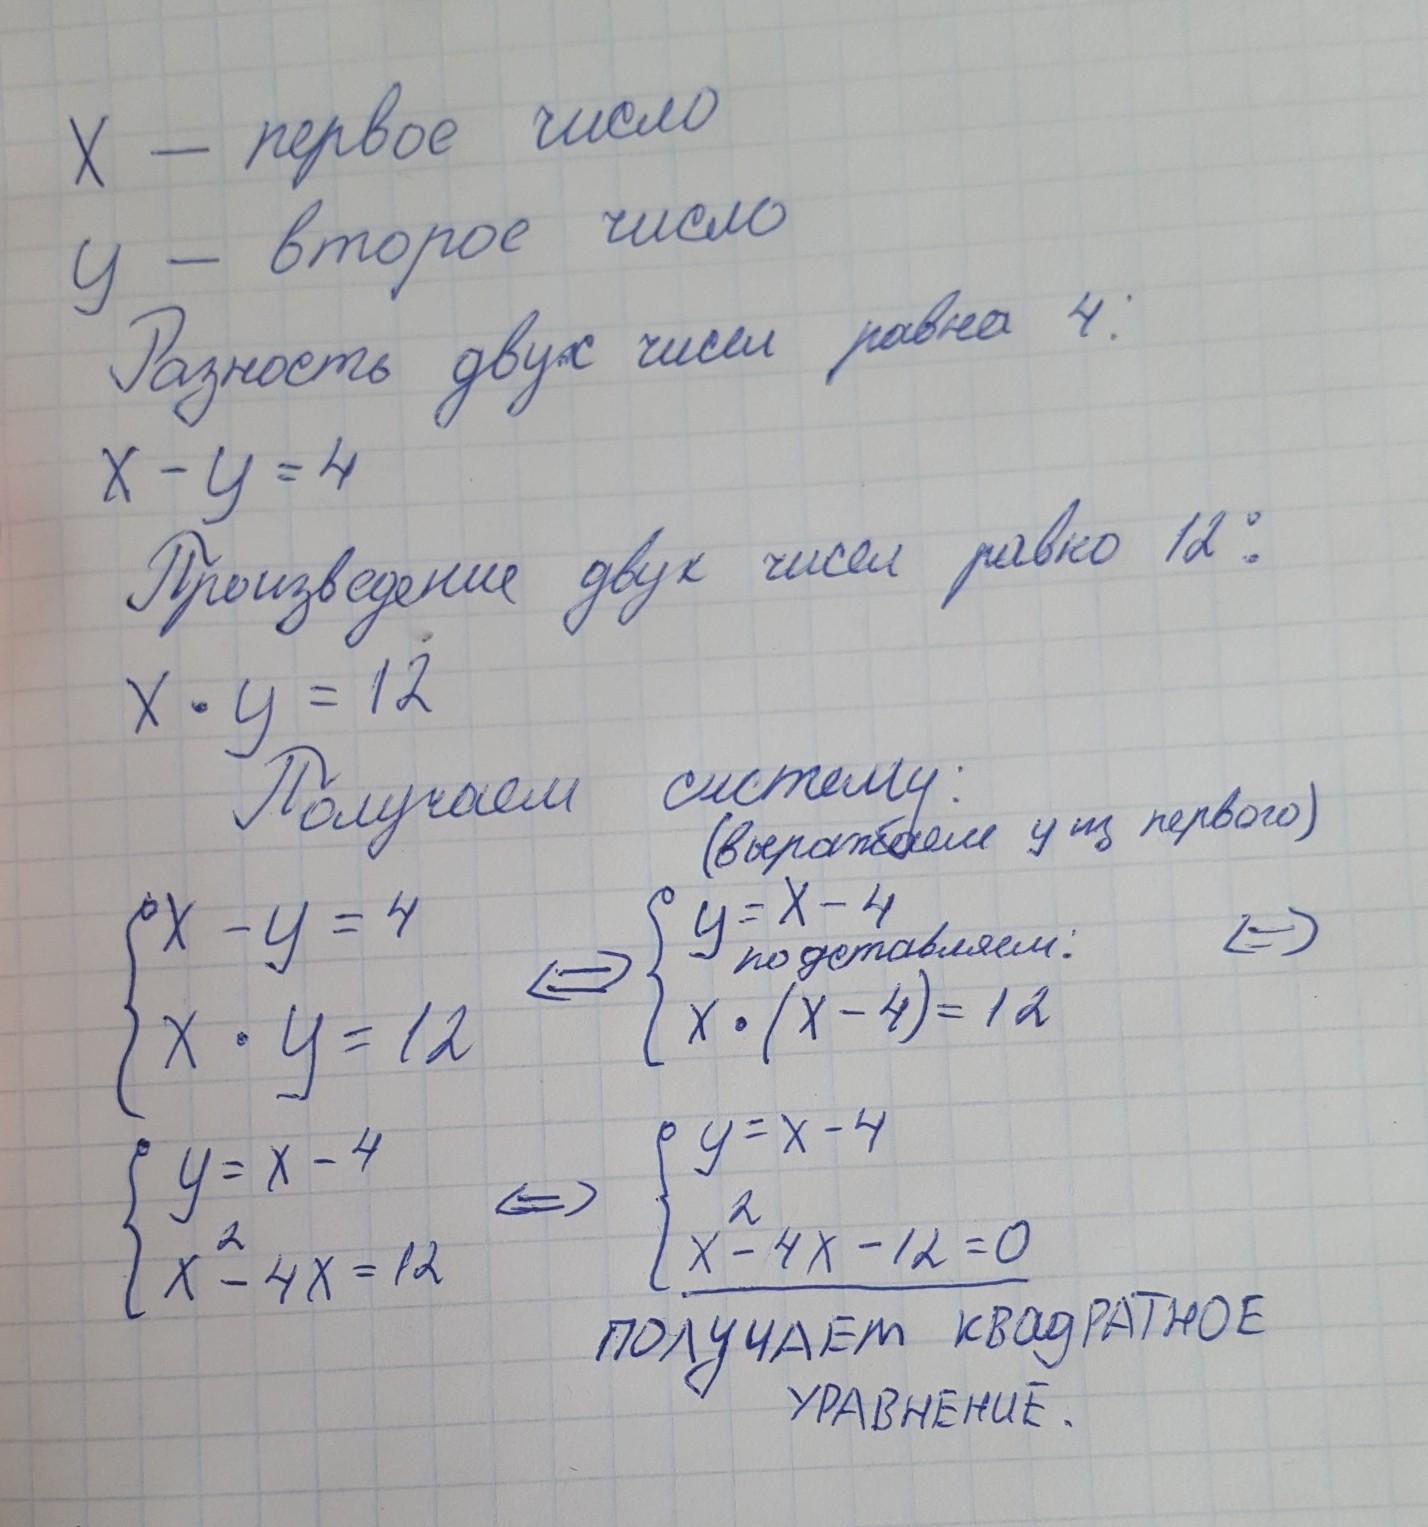 X — первое число
y — второе число
Разность двух чисел равна 4:
x - y = 4
Произведение двух чисел равно 12:
x · y = 12
Получаем систему:
(выражаем y из первого)
{ x - y = 4
x · y = 12
<=>
{ y = x - 4
подставляем:
x · (x - 4) = 12
<=>
{ y = x - 4
x² - 4x = 12
<=>
{ y = x - 4
x² - 4x - 12 = 0
ПОЛУЧАЕМ КВАДРАТНОЕ
УРАВНЕНИЕ.